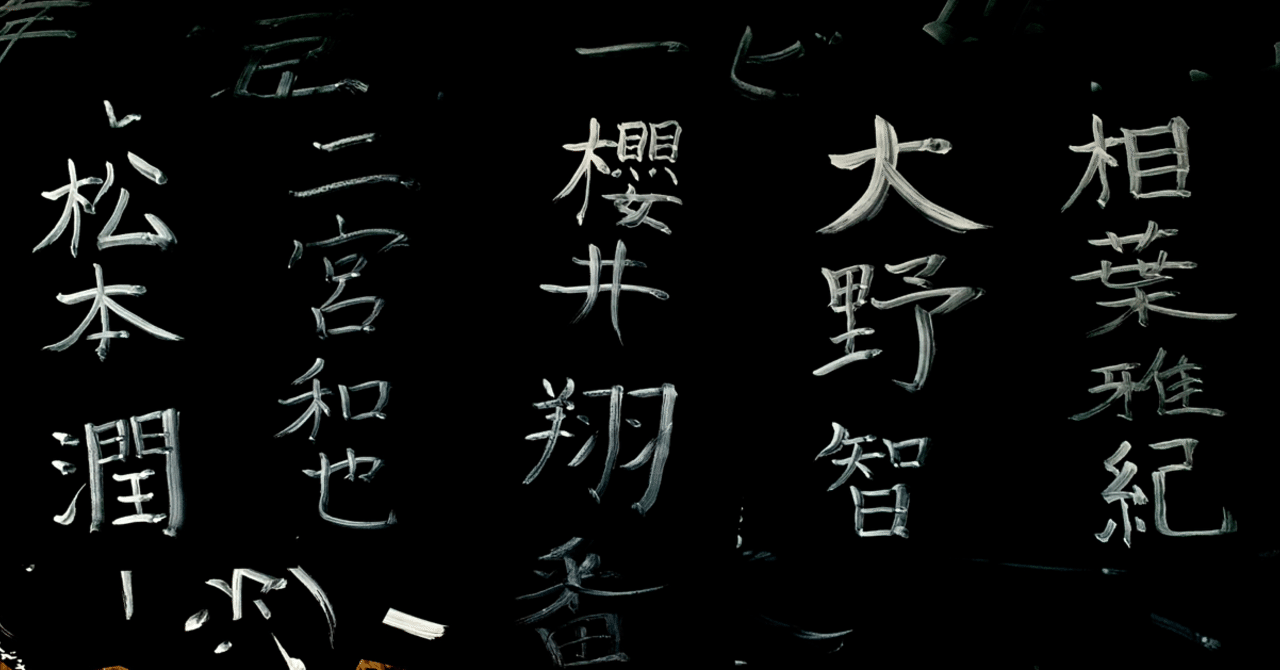 相葉雅紀
大野智
一
櫻井翔
番
二宮和也
松本潤